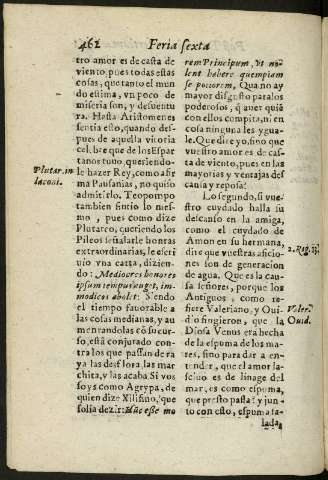 462 Feria sexta
tro amor es de casta de
viento, pues todas estas
cosas, que tanto el mun
do estima, vn poco de
miseria son, y desuentu
ra. Hasta Aristomenes
sentia esto, quando des-
pues de aquella vitoria
celebre que de los Espar
tanos tuuo, queriendo-
Plutar. in
laconi.
le hazer Rey, como afir
ma Pausanias, no quiso
admitirlo. Teopompo
tambien sintio lo nes-
mo, pues como dize
Plutarco, queriendo los
Pileos señalarle honras
extraordinarias, le escri
uio vna carta, diziẽn-
do: Mediocres honores
ipsum tempus auget, im-
modicos abolet: Siendo
el tiempo fauorable a
las cosas medianas, y au
mentandolas cõ su cur-
so, està conjurado con-
tra los que passan de ra
ya las desflora, las mar
chita, y las acaba. Si vos
soys como Agrypa, de
quien dize Xilifino, que
solia dezir: Huc esse mo
rem Principum, vt no-
lent habere quempiam
se potiorem, Que no ay
mayor disgusto para los
poderosos, q̃ auer quiẽ
con ellos compita, ni en
cosa ninguna les ygua-
le. Que dire yo, sino que
vuestro amor es de cas-
ta de viento, pues en las
mayorias y ventajas des
cansa y reposa?
Lo segundo, si vues-
tro cuydado halla su
descanso en la amiga,
como el cuydado de
Amon en su hermana,
2. Reg. 13.
dire que vuestras aficio-
nes son de generacion
de agua. Que es la cau-
sa señores, porque los
Antiguos, como re-
fiere Valeriano, y Oui-
Valer.
Ouid.
dio fingieron, que la
Diosa Venus era hecha
de la espuma de los ma-
res, sino para dar a en-
tender, que el amor la-
sciuo es de linage del
mar, es como espuma,
que presto passa? y jun-
to con esto, espuma sa-
lada,